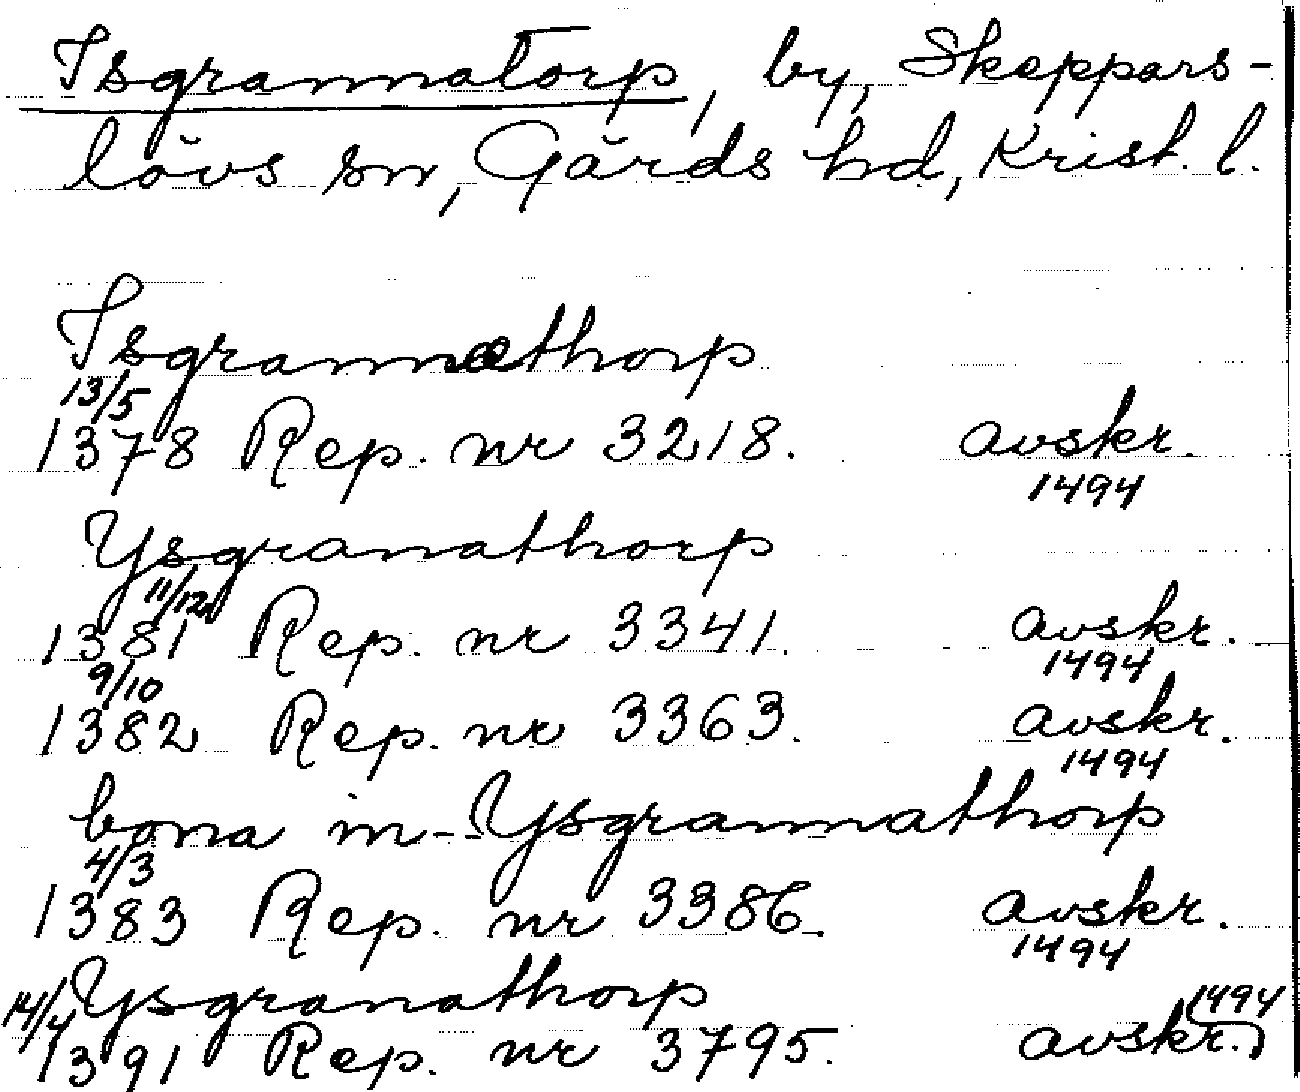 Isgrannatorp, by, Skeppars-
lövs sn, Gärds hd, Krist. l.
Isgrannæthorp
13/5
1378 Rep. nr 3218. avskr.
1494
Ysgranathorp
11/12
1381 Rep. nr 3341. avskr.
1494
9/10
1382 Rep. nr 3363. avskr.
1494
bona in Ysgrannathorp
4/3
1383 Rep. nr 3386. avskr.
1494
Ysgranathorp
14/4 1494
1391 Rep. nr 3795. avskr.